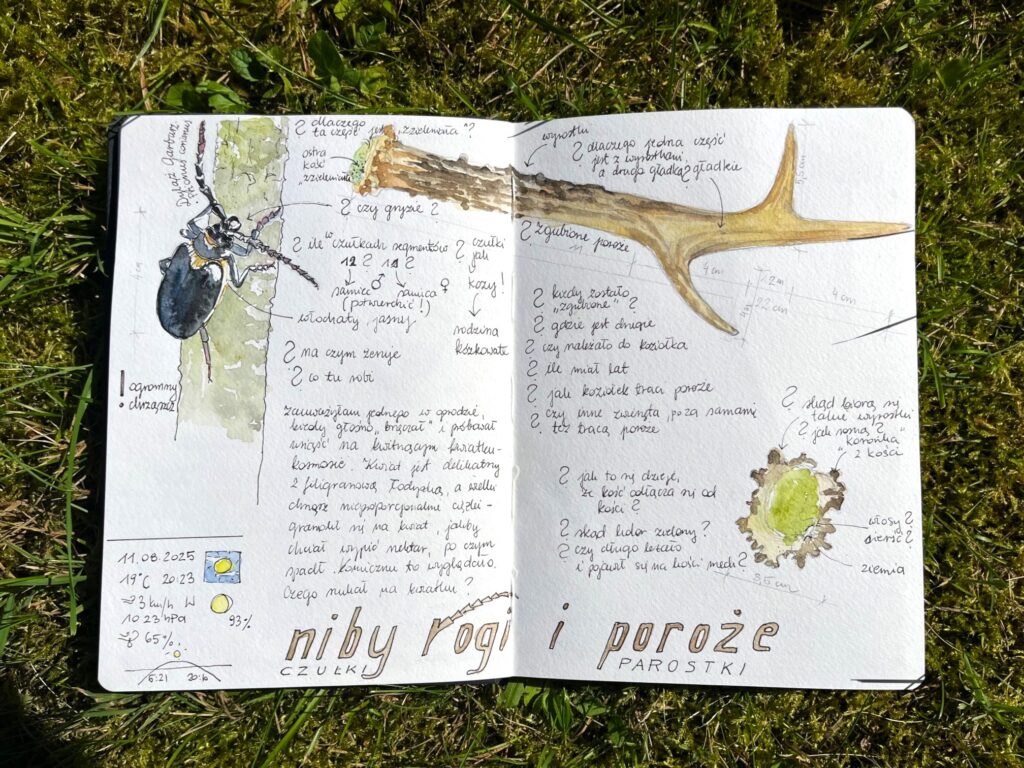 Dyląż Garbarz
dlaczego
ta część jest „zzieleniała"?
ostra
kość
„zzieleniała
czy gryzie
ile w czułkach segmentów
12 11
samiec ♂ samica ♀
(potwierdzić!)
włochaty, jasny
czułki
jak
u
kozy!
rodzina
kózkowate
na czym żeruje
co tu robi
4 cm
! ogromny
chrząszcz
Zauważyłam jednego w ogrodzie,
kiedy głośno „bręczał" i próbował
usiąść na kwitnącym kwiatku-
kosmosie. Kwiat jest delikatny
z filigranową łodyżką, a wielki
chrząszcz nieproporcjonalnie ciężki -
gramolił się na kwiat, jakby
chciał wypić nektar, po czym
spadł. Komicznie to wyglądało.
Czego szukał na kwiatku?
11.08.2025
19°C 20:23
3 km/h W
1023 hPa 93%
65%
5:21 20:16
niby rogi i poroże
CZUŁKI PAROSTKI
wyrostki
dlaczego jedna część
jest z wyrostkami,
a druga gładka? gładkie
5,5 cm
Zgubione poroże
11 4 cm
2 cm
22 cm 4 cm
kiedy zostało
„zgubione"?
gdzie jest drugie
czy należało do koziołka
ile miał lat
jak koziołek traci poroże
czy inne zwierzęta, poza sarnami
też tracą poroże
skąd biorą się
takie wyrostki
jak rosną?
„koronka"
z kości
jak to się dzieje,
że kość odłącza się od
kości?
skąd kolor zielony?
czy długo leżało
i pojawił się na kości mech?
włosy?
sierść?
ziemia
3,5 cm